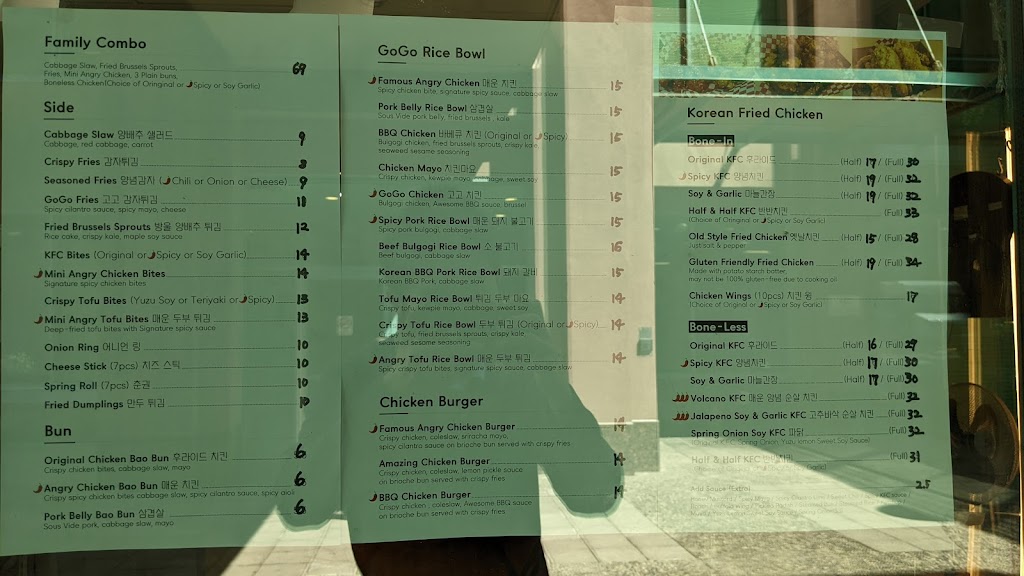 Family Combo
Cabbage Slaw, Fried Brussels Sprouts, 69
Fries, Mini Angry Chicken, 3 Plain buns,
Boneless Chicken(Choice of Oringinal or Spicy or Soy Garlic)
Side
Cabbage Slaw 양배추 샐러드 9
Cabbage, red cabbage, carrot
Crispy Fries 감자튀김 8
Seasoned Fries 양념감자 (Chili or Onion or Cheese) 9
GoGo Fries 고고 감자튀김 11
Spicy cilantro sauce, spicy mayo, cheese
Fried Brussels Sprouts 방울 양배추 튀김 12
Rice cake, crispy kale, maple soy sauce
KFC Bites (Original or Spicy or Soy Garlic) 14
Mini Angry Chicken Bites 14
Signature spicy chicken bites
Crispy Tofu Bites (Yuzu Soy or Teriyaki or Spicy) 13
Mini Angry Tafu Bites 매운 두부 튀김 13
Deep-fried tofu bites with Signature spicy sauce
Onion Ring 어니언 링 10
Cheese Stick (7pcs) 치즈 스틱 10
Spring Roll (7pcs) 춘권 10
Fried Dumplings 만두 튀김 10
Bun
Original Chicken Bao Bun 후라이드 치킨 6
Crispy chicken bites, cabbage slaw, mayo
Angry Chicken Bao Bun 매운 치킨 6
Crispy spicy chicken bites cabbage slaw, spicy cilantro sauce, spicy aioli
Pork Belly Bao Bun 삼겹살 6
Sous Vide pork, cabbage slaw, mayo
GoGo Rice Bowl
Famous Angry Chicken 매운 치킨 15
Spicy chicken bite, signature spicy sauce, cabbage slaw
Pork Belly Rice Bowl 삼겹살 15
Sous Vide pork belly, fried brussels, kale
BBQ Chicken 바베큐 치킨 (Original or Spicy) 15
Bulgogi chicken, fried brussels sprouts, crispy kale,
seaweed sesame seasoning
Chicken Mayo 치킨마요 15
Crispy chicken, kewpie mayo, cabbage, sweet soy
GoGo Chicken 고고 치킨 15
Bulgogi chicken, Awesome BBQ sauce, brussel
Spicy Pork Rice Bowl 매운 돼지 불고기 15
Spicy pork bulgogi, cabbage slaw
Beef Bulgogi Rice Bowl 소 불고기 16
Beef bulgogi, cabbage slaw
Korean BBQ Pork Rice Bowl 돼지 갈비 15
Korean BBQ Pork, cabbage slaw
Tofu Mayo Rice Bowl 튀김 두부 마요 14
Crispy tofu, kewpie mayo, cabbage, sweet soy
Crispy Tofu Rice Bowl 두부 튀김 (Original or Spicy) 14
Crispy tofu, fried brussels sprouts, crispy kale,
seaweed sesame seasoning
Angry Tofu Rice Bowl 매운 두부 튀김 14
Spicy crispy tofu bites, signature spicy sauce, cabbage slaw
Chicken Burger
Famous Angry Chicken Burger 14
Crispy chicken, coleslaw, sriracha mayo,
spicy cilantro sauce on brioche bun served with crispy fries
Amazing Chicken Burger 14
Crispy chicken, coleslaw, lemon pickle sauce
on brioche bun served with crispy fries
BBQ Chicken Burger 14
Crispy chicken, coleslaw, Awesome BBQ sauce
on brioche bun served with crispy fries
Korean Fried Chicken
Bone-In
Original KFC 후라이드 (Half) 17 / (Full) 30
Spicy KFC 양념치킨 (Half) 19 / (Full) 32
Soy & Garlic 마늘간장 (Half) 19 / (Full) 32
Half & Half KFC 반반치킨 (Full) 33
(Choice of Oringinal or Spicy or Soy Garlic)
Old Style Fried Chicken 옛날치킨 (Half) 15 / (Full) 28
Just salt & pepper
Gluten Friendly Fried Chicken (Half) 19 / (Full) 34
Made with potato starch batter,
may not be 100% gluten-free due to cooking oil
Chicken Wings (10pcs) 치킨 윙 17
(Choice of Original or Spicy or Soy Garlic)
Bone-Less
Original KFC 후라이드 (Half) 16 / (Full) 29
Spicy KFC 양념치킨 (Half) 17 / (Full) 30
Soy & Garlic 마늘간장 (Half) 17 / (Full) 30
Volcano KFC 매운 양념 순살 치킨 (Full) 32
Jalapeno Soy & Garlic KFC 고추바삭 순살 치킨 (Full) 32
Spring Onion Soy KFC 파닭 (Full) 32
Half & Half KFC 반반치킨 (Full) 31
2.5